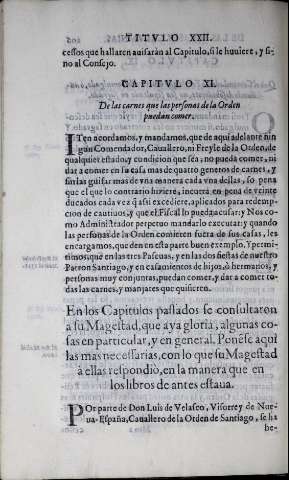 TITVLO XXII.
cessos que hallaren auisarán al Capitulo, si le huuiere, y si-
no al Consejo.
CAPITVLO XI.
De las carnes que las personas de la Orden
puedan comer.
ITen acordamos, y mandamos, que de aqui adelante nin
gun Comendador, Cauallero, ni Freyle de la Orden, de
qualquier estado, y condicion que sea, no pueda comer, ni
dar a comer en su casa mas de quatro generos de carnes, y
sin las guisar mas de cada vna dellas, so pena
que el que lo contrario hiziere, incurra en pena de veinte
ducados cada vez q̃ assi excediere, aplicados para redemp-
cion de cautiuos, y que el Fiscal lo pueda acusar: y Nos co-
mo Administrador perpetuo mandarlo executar: y quando
las personas de la Orden comieren fuera de sus casas, les
encargamos, que den en esta parte buen exemplo. Y permi-
timos, que en las tres Pascuas, y en las dos fiestas de nuestro
Patron Santiago, y en casamientos de hijos, ò hermanos, y
personas muy conjuntas, puedan comer, y dar a comer to-
das las carnes, y manjares que quisieren.
En los Capitulos passados se consultaron
à su Magestad, que aya gloria, algunas co-
sas en particular, y en general. Ponese aqui
las mas necessarias, con lo que su Magestad
à ellas respondiò, en la manera que en
los libros de antes estaua.
POr parte de Don Luis de Velasco, Visorrey de Nue-
ua-España, Cauallero de la Orden de Santiago, se ha
he-